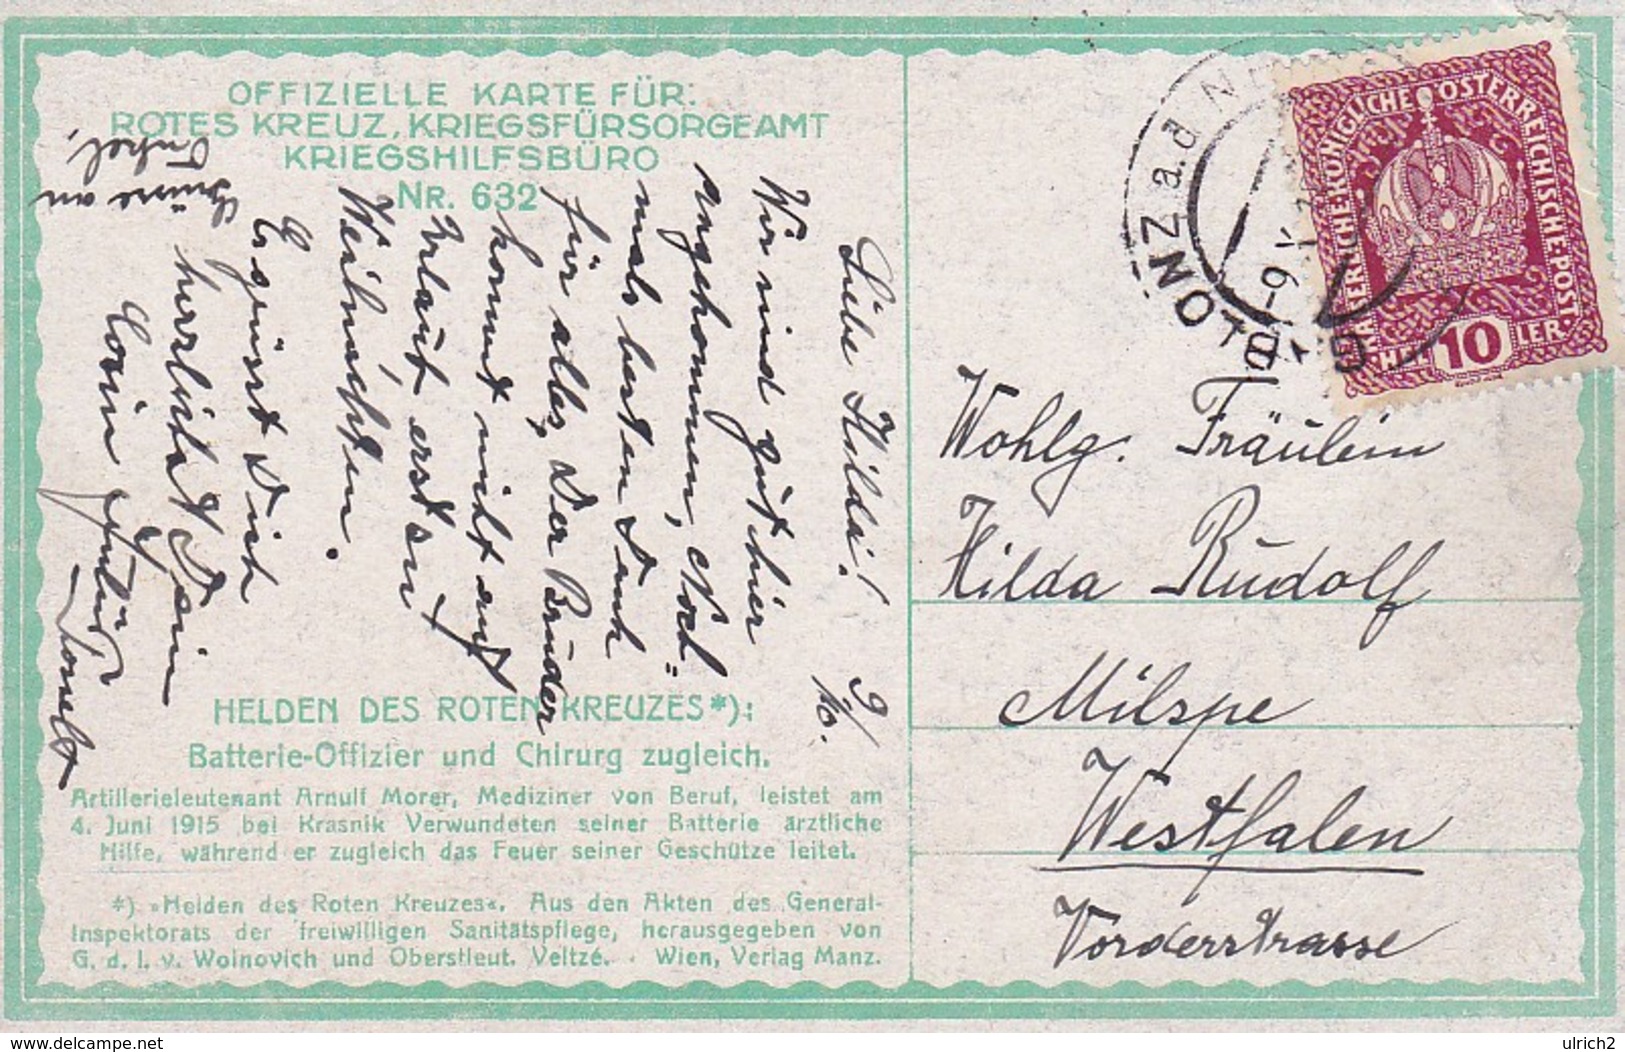 OFFIZIELLE KARTE FÜR:
ROTES KREUZ, KRIEGSFÜRSORGEAMT
KRIEGSHILFSBÜRO
NR. 632
9/10.
Liebe Hilda!
Wir sind gut hier
angekommen, Noch-
mals besten Dank
für alles, Der Bruder
kommt nicht auf
Urlaub, erst zu
Weihnachten.
Es grüsst Dich
herzlichst Dein
Cousin
Grüsse an
Onkel,
HELDEN DES ROTEN KREUZES*):
Batterie-Offizier und Chirurg zugleich.
Artillerieleutenant Arnulf Morer, Mediziner von Beruf, leistet am
4. Juni 1915 bei Krasnik Verwundeten seiner Batterie ärztliche
Hilfe, während er zugleich das Feuer seiner Geschütze leitet.
*) »Helden des Roten Kreuzes«. Aus den Akten des General-
Inspektorats der freiwilligen Sanitätspflege, herausgegeben von
G. d. I. v. Woinovich und Oberstleut. Veltzé. • Wien, Verlag Manz.
KAISERLICHE KÖNIGLICHE ÖSTERREICHISCHE POST
HELLER
10
Wohlg. Fräulein
Hilda Rudolf
Milspe
Westfalen
Vorderstrasse
www.delcampe.net
ulrich2